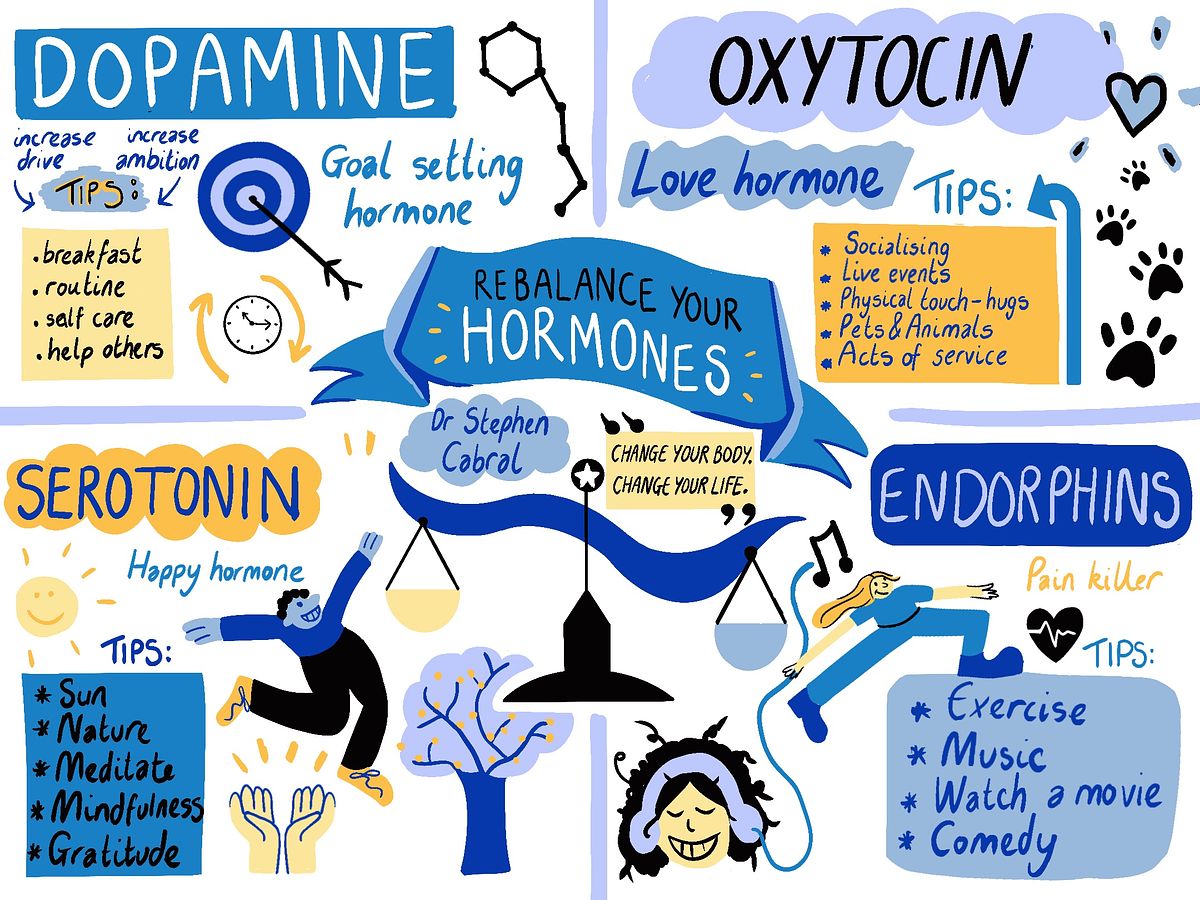 DOPAMINE
increase drive
increase ambition
TIPS:
Goal setting
hormone
.breakfast
.routine
.self care
.help others
OXYTOCIN
Love hormone
TIPS:
* Socialising
* Live events
* Physical touch-hugs
* Pets & Animals
* Acts of service
REBALANCE YOUR
HORMONES
Dr Stephen
Cabral
"CHANGE YOUR BODY.
CHANGE YOUR LIFE."
SEROTONIN
Happy hormone
TIPS:
* Sun
* Nature
* Meditate
* Mindfulness
* Gratitude
ENDORPHINS
Pain killer
TIPS:
* Exercise
* Music
* Watch a movie
* Comedy